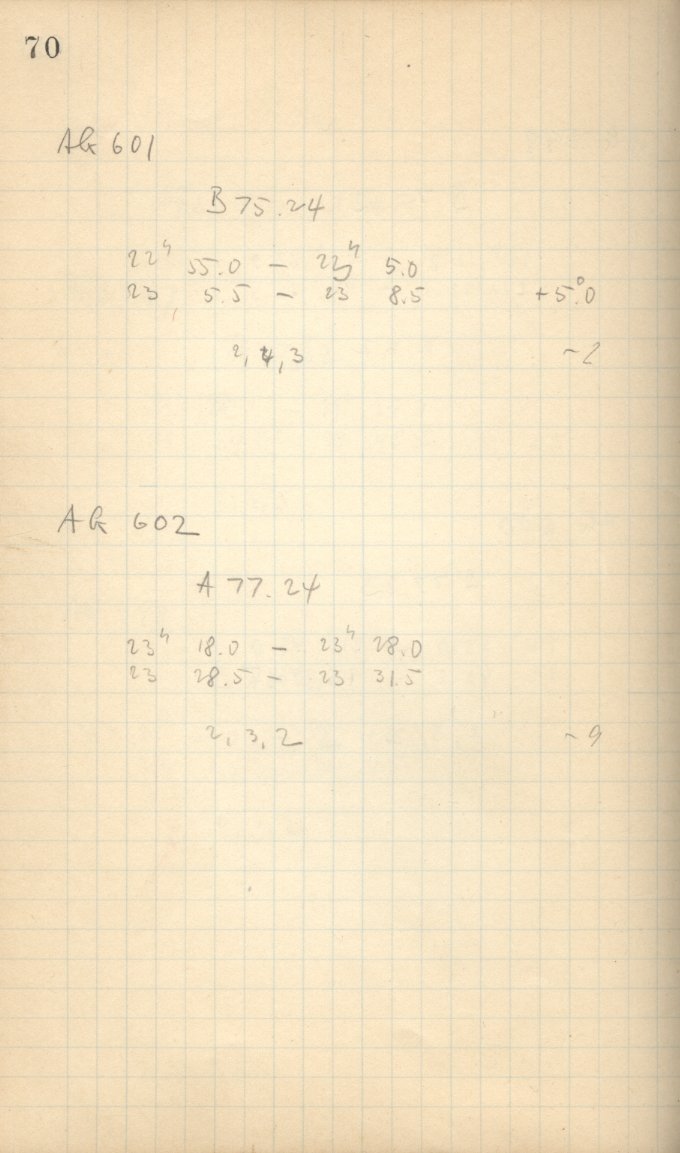 70
AG 601
B 75.24
22ʰ 55.0 – 23ʰ 5.0
23 5.5 – 23 8.5 +5.°0
2, 4, 3 ~2
AG 602
A 77.24
23ʰ 18.0 – 23ʰ 28.0
23 28.5 – 23 31.5
2, 3, 2 ~9